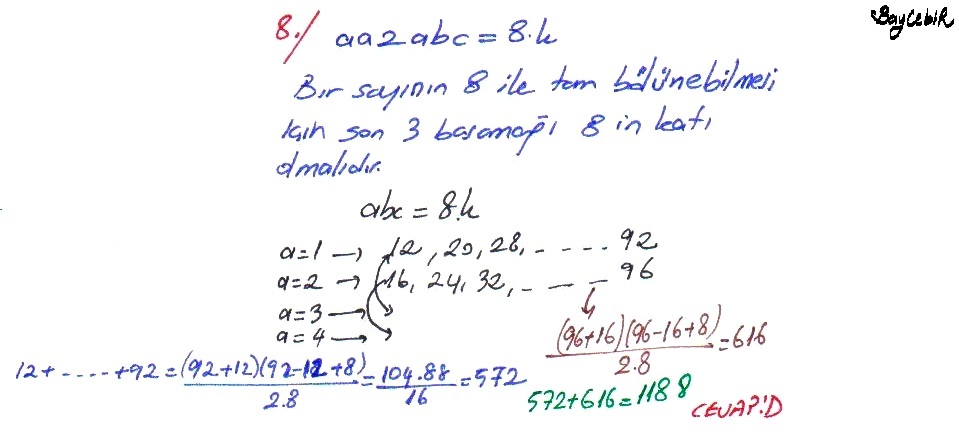 BayCebiR
8./ aa2abc = 8.k
Bir sayının 8 ile tam bölünebilmesi
için son 3 basamağı 8 in katı
olmalıdır.
abc = 8.k
a=1 → 12, 20, 28, - - - - - 92
a=2 → 16, 24, 32, - - - 96
a=3 →
a=4 →
(96+16)(96-16+8)/2.8 = 616
12+ - - - - - +92 = (92+12)(92-12+8)/2.8 = 104.88/16 = 572
572+616=1188
CEVAP:D